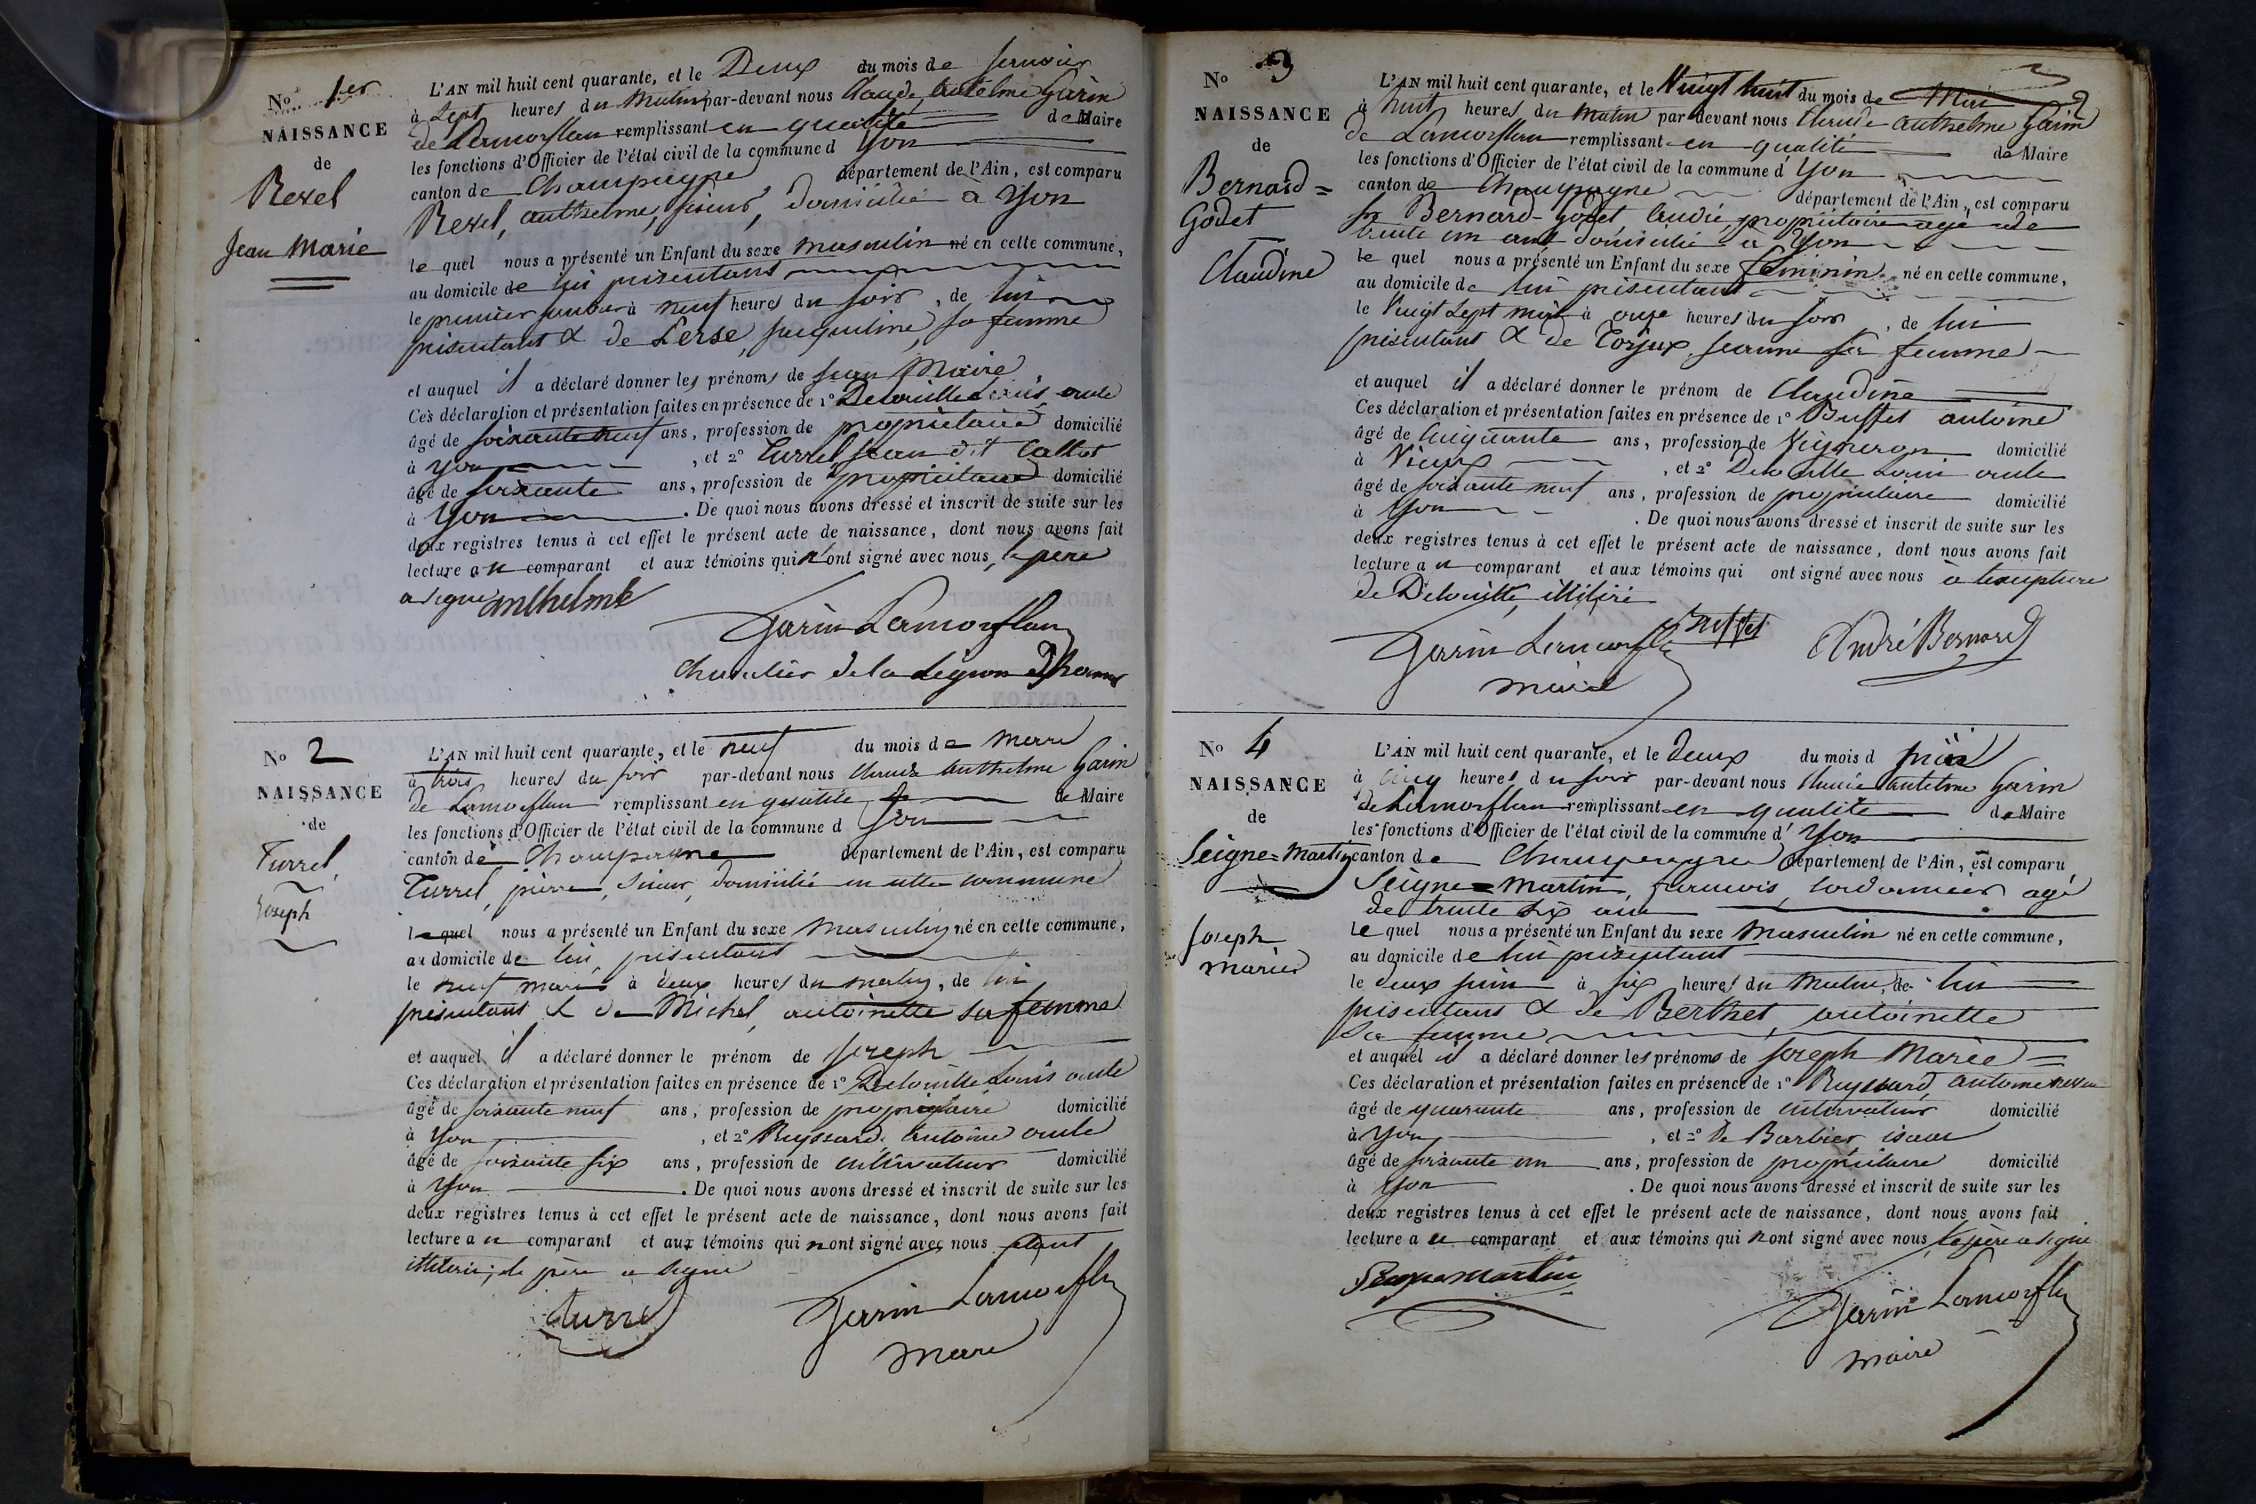 No 1er
NAISSANCE
de
Rexel
Jean Marie
L'AN mil huit cent quarante, et le Deux du mois de Janvier
à Sept heures du Matin par-devant nous Claude Anthelme Garin
de Lamorflan remplissant en qualité de Maire
les fonctions d'Officier de l'état civil de la commune d Yon
canton de Champagne département de l'Ain, est comparu
Rexel, anthelme, domicilié à Yon
le quel nous a présenté un Enfant du sexe masculin né en cette commune,
au domicile de lui présentant
le premier à neuf heures du soir, de lui
présentant & de Lerse, Jacqueline, sa femme
et auquel il a déclaré donner les prénoms de Jean Marie
Ces déclaration et présentation faites en présence de 1° oncle
âgé de soixante neuf ans, profession de propriétaire domicilié
à Yon, et 2° Turrel Jean dit
âgé de soixante ans, profession de propriétaire domicilié
à Yon. De quoi nous avons dressé et inscrit de suite sur les
deux registres tenus à cet effet le présent acte de naissance, dont nous avons fait
lecture au comparant et aux témoins qui n'ont signé avec nous, le père
a signé anthelme
Garin Lamorflan
chevalier de la Légion d'honneur
No 2
NAISSANCE
de
Turrel,
Joseph
L'AN mil huit cent quarante, et le neuf du mois de
à trois heures du soir par-devant nous Claude Anthelme Garin
de Lamorflan remplissant en qualité de Maire
les fonctions d'Officier de l'état civil de la commune d Yon
canton de Champagne département de l'Ain, est comparu
Turrel, pierre, domicilié en cette commune
le quel nous a présenté un Enfant du sexe Masculin né en cette commune,
au domicile de lui présentant
le neuf mars à deux heures du matin, de lui
présentant & de Michel, antoinette sa femme
et auquel il a déclaré donner le prénom de Joseph
Ces déclaration et présentation faites en présence de 1° Louis oncle
âgé de soixante neuf ans, profession de propriétaire domicilié
à Yon, et 2° Ruyssard, Antoine oncle
âgé de soixante six ans, profession de cultivateur domicilié
à Yon. De quoi nous avons dressé et inscrit de suite sur les
deux registres tenus à cet effet le présent acte de naissance, dont nous avons fait
lecture au comparant et aux témoins qui n'ont signé avec nous étant
le père a signé
turrel
Garin Lamorflan
Maire
No 3
NAISSANCE
de
Bernard=
Godet
Claudine
L'AN mil huit cent quarante, et le Vingt huit du mois de
à huit heures du Matin par devant nous Claude anthelme Garin
de Lamorflan remplissant en qualité de Maire
les fonctions d'Officier de l'état civil de la commune d' Yon
canton de Champagne département de l'Ain, est comparu
Bernard-Godet André, propriétaire agé de
trente un ans domicilié à Yon
le quel nous a présenté un Enfant du sexe féminin né en cette commune,
au domicile de lui présentant
le Vingt Sept à onze heures du soir, de lui
présentant & de Jeanne sa femme
et auquel il a déclaré donner le prénom de Claudine
Ces déclaration et présentation faites en présence de 1° Buffet antoine
âgé de cinquante ans, profession de Vigneron domicilié
à Vieux, et 2° oncle
âgé de soixante neuf ans, profession de propriétaire domicilié
à Yon. De quoi nous avons dressé et inscrit de suite sur les
deux registres tenus à cet effet le présent acte de naissance, dont nous avons fait
lecture au comparant et aux témoins qui ont signé avec nous
de
Garin Lamorflan
Buffet
André Bernard
maire
No 4
NAISSANCE
de
Seigne=Martin
Joseph
marie
L'AN mil huit cent quarante, et le Deux du mois d juin
à cinq heures du soir par-devant nous Claude Anthelme Garin
de Lamorflan remplissant en qualité de Maire
les fonctions d'Officier de l'état civil de la commune d' Yon
canton de Champagne département de l'Ain, est comparu
Seigne=martin, françois, cordonnier agé
de trente six ans
le quel nous a présenté un Enfant du sexe Masculin né en cette commune,
au domicile de lui présentant
le deux juin à six heures du Matin, de lui
présentant & de Berthet, antoinette
sa femme
et auquel il a déclaré donner les prénoms de Joseph Marie
Ces déclaration et présentation faites en présence de 1° Ruyssard, antoine neveu
âgé de quarante ans, profession de cultivateur domicilié
à Yon, et 2° de Barbier
âgé de soixante un ans, profession de propriétaire domicilié
à Yon. De quoi nous avons dressé et inscrit de suite sur les
deux registres tenus à cet effet le présent acte de naissance, dont nous avons fait
lecture au comparant et aux témoins qui n'ont signé avec nous, le père a signé
Seigne Martin
Garin Lamorflan
maire